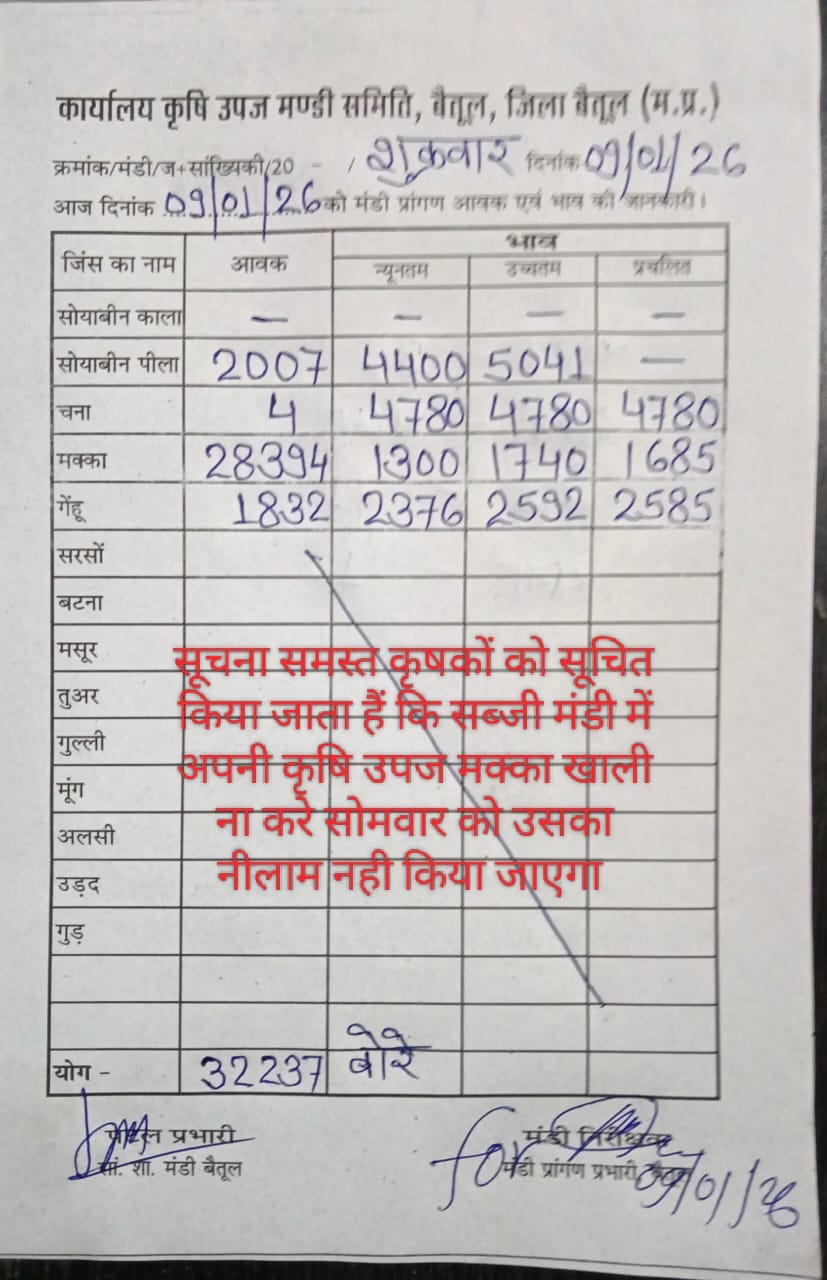 कार्यालय कृषि उपज मण्डी समिति, बैतूल, जिला बैतूल (म.प्र.)
क्रमांक/मंडी/ज+सांख्यिकी/20 - / शुक्रवार दिनांक 09/01/26
आज दिनांक 09/01/26 को मंडी प्रांगण आवक एवं भाव की जानकारी।
जिंस का नाम आवक भाव
न्यूनतम उच्चतम प्रचलित
सोयाबीन काला — — — —
सोयाबीन पीला 2007 4400 5041 —
चना 4 4780 4780 4780
मक्का 28394 1300 1740 1685
गेंहू 1832 2376 2592 2585
सरसों
बटना
मसूर
तुअर
गुल्ली
मूंग
अलसी
उड़द
गुड़
सूचना समस्त कृषकों को सूचित
किया जाता हैं कि सब्जी मंडी में
अपनी कृषि उपज मक्का खाली
ना करे सोमवार को उसका
नीलाम नही किया जाएगा
योग - 32237 बोरे
प्रभारी
सां. शा. मंडी बैतूल
for मंडी
मंडी प्रांगण प्रभारी
09/01/26